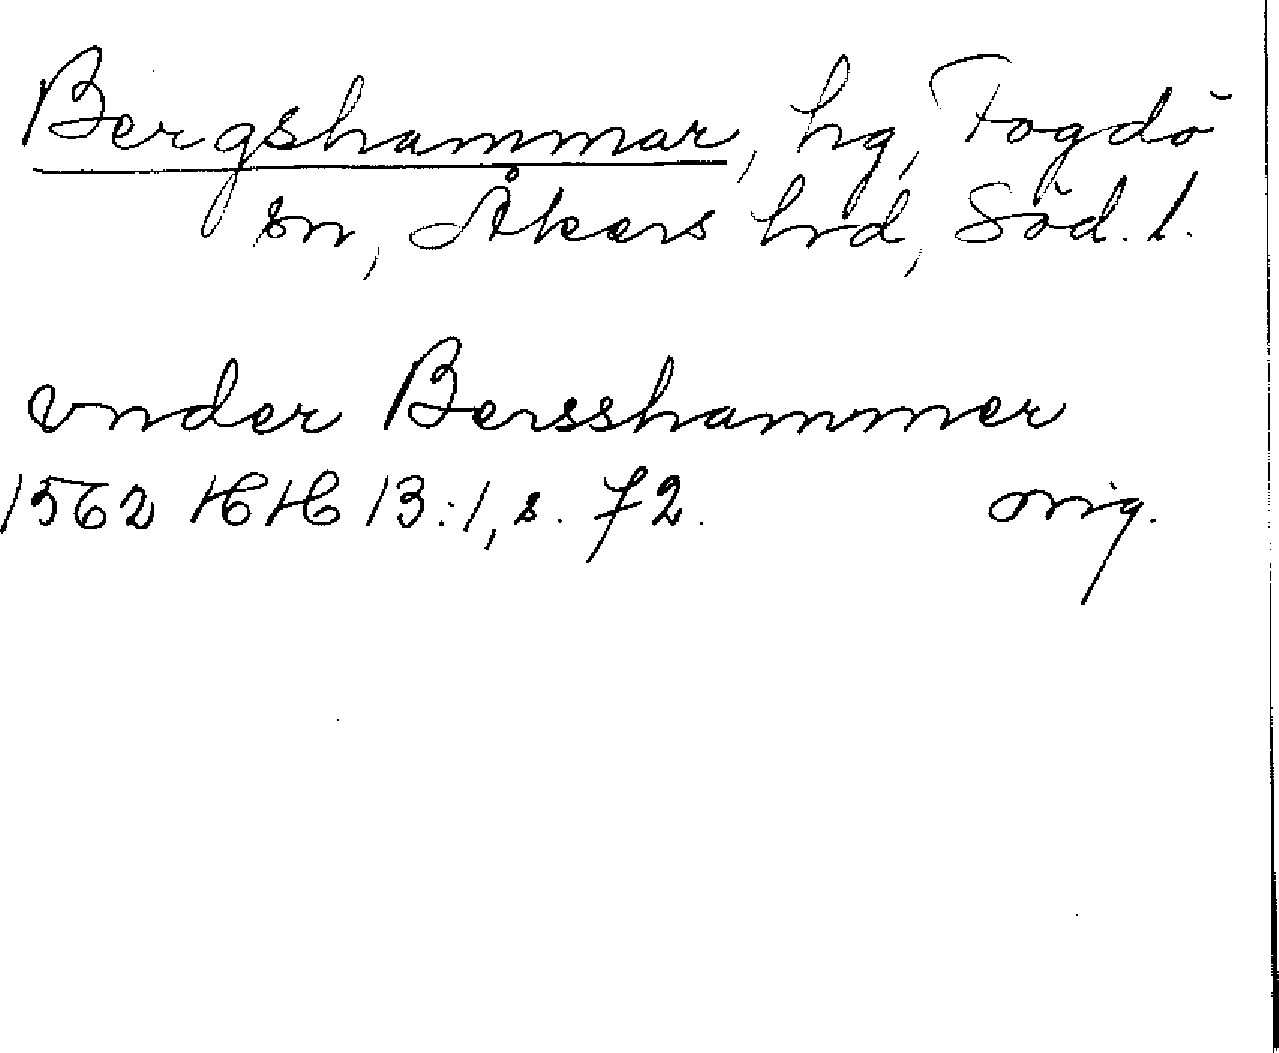 Bergshammar, hg, Fogdö
sn, Åkers hrd, Söd. l.
vnder Bersshammer
1562 HH 13:1, s. 72. orig.